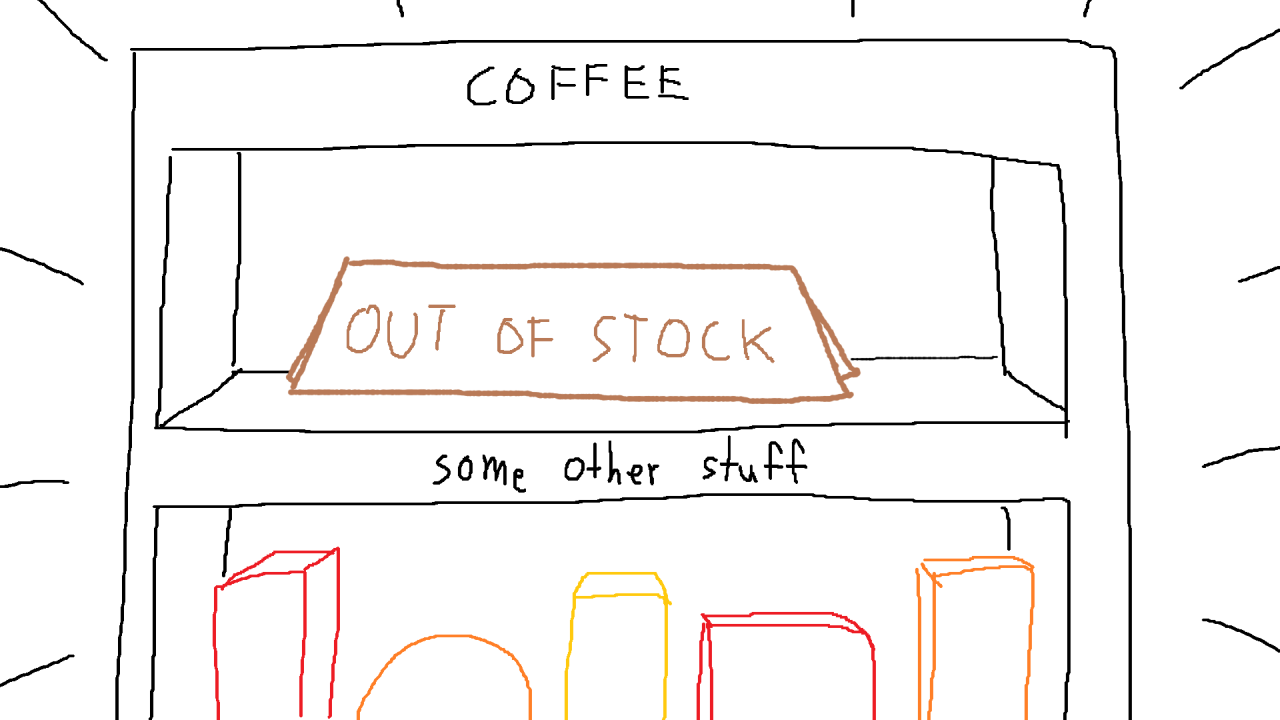 COFFEE
OUT OF STOCK
some other stuff